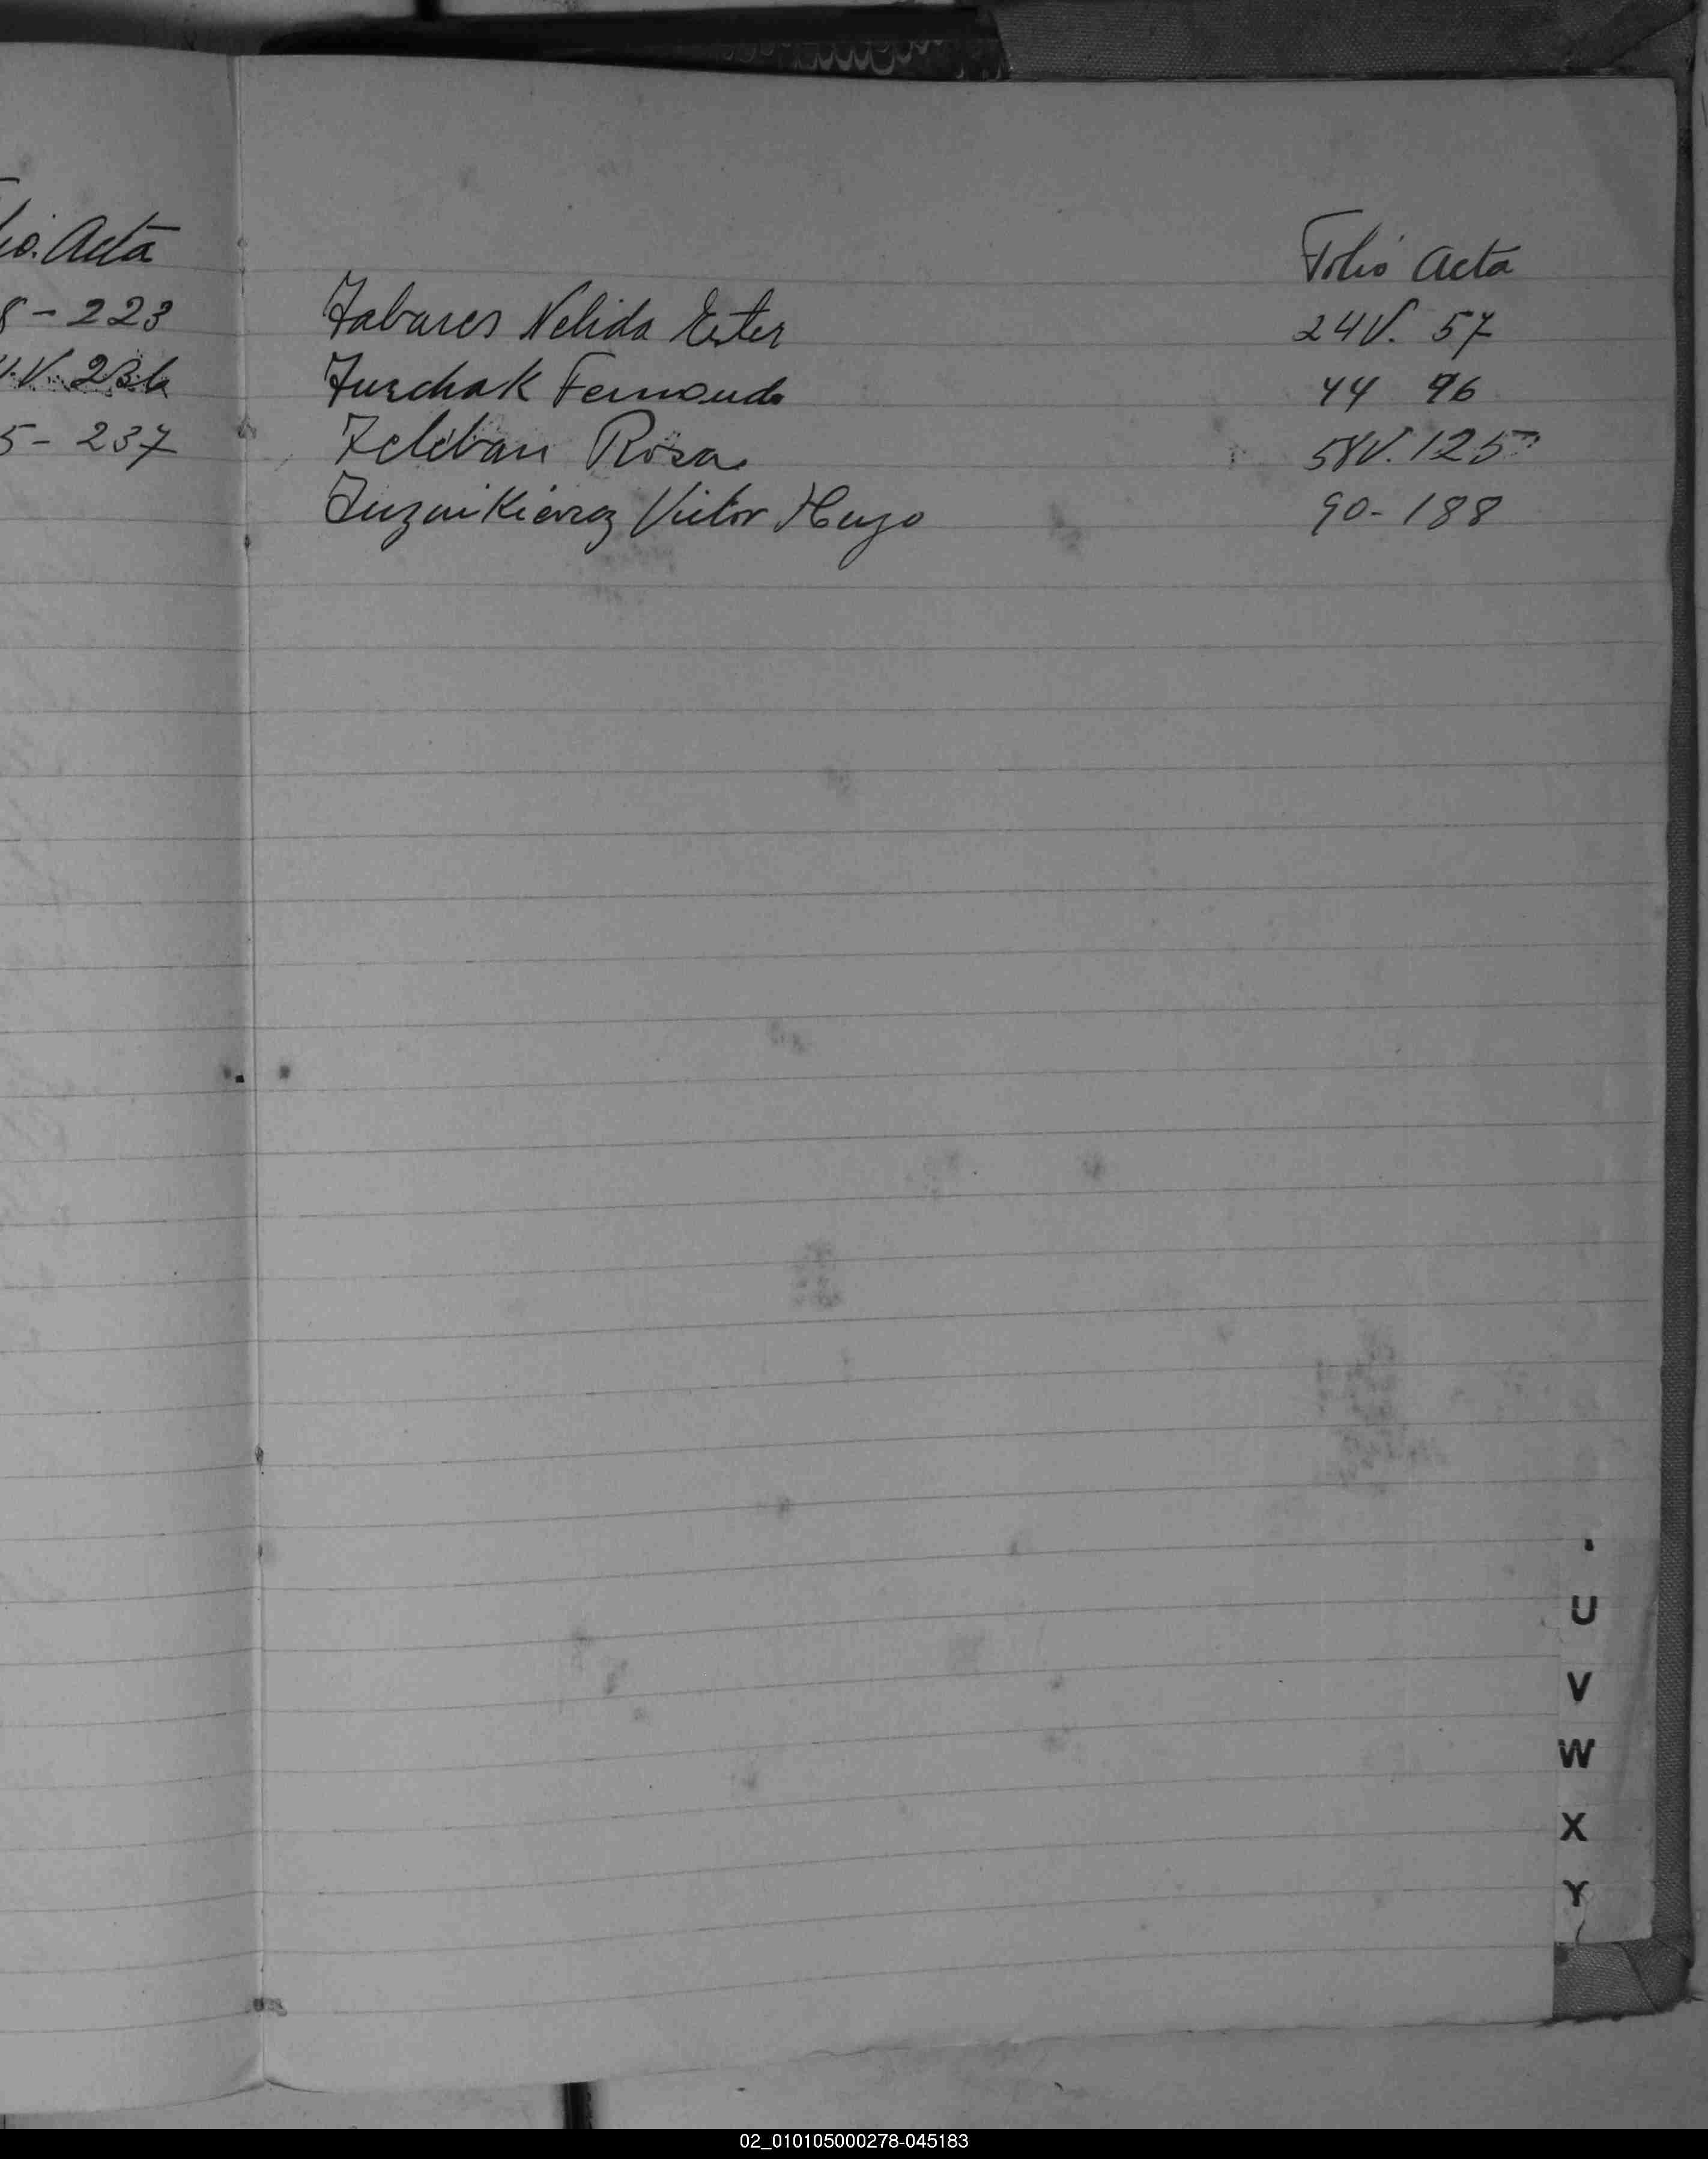 io. Acta
8 - 223
V. 236
5 - 237
Folio Acta
Tabares Nelida Ester 24V. 57
Turchak Fernando 44 96
Teleban Rosa 58V. 125
Victor Hugo 90 - 188
U
V
W
X
Y
02_010105000278-045183